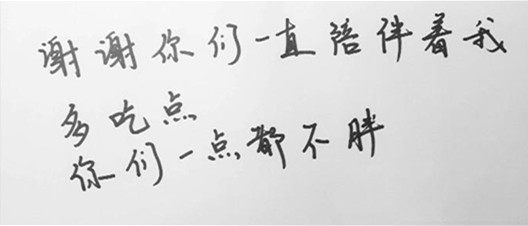 谢谢你们一直陪伴着我
多吃点
你们一点都不胖